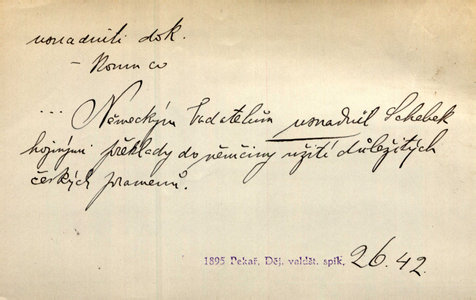 usnadniti dok.
– komu co
... Německým badatelům usnadnil Schebek
hojnými překlady do němčiny užití důležitých
českých pramenů.
1895 Pekař, Děj. valdšt. spik. 26.42